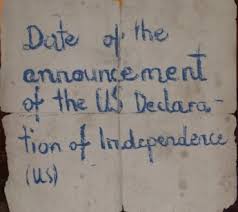 Date of the
announcement
of the US Declara-
tion of Independence
(US)